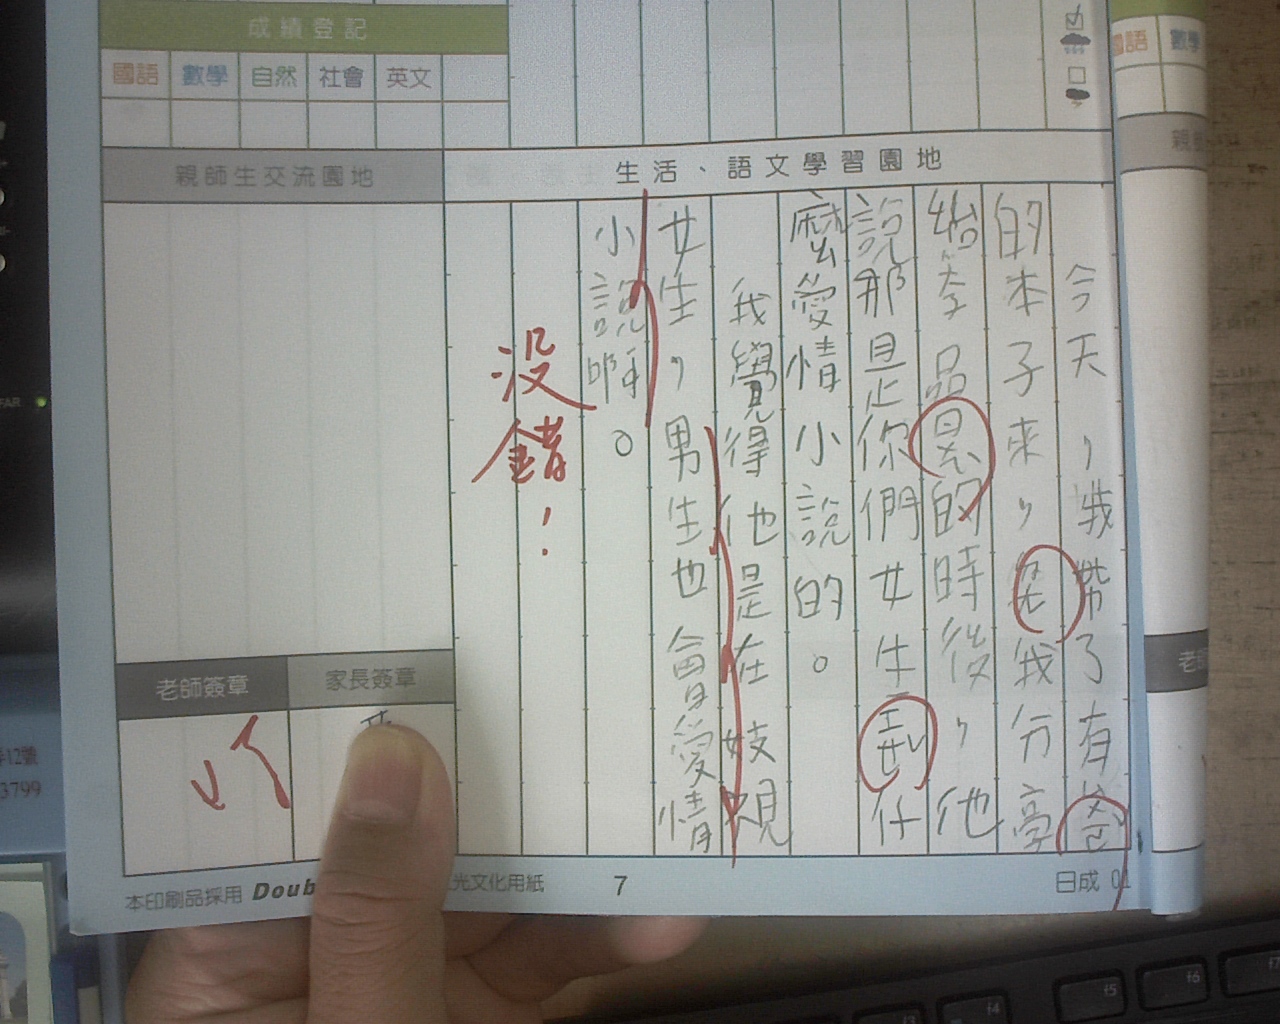 成績登記
國語 數學 自然 社會 英文
國語 數學
親師生交流園地
生活、語文學習園地
今天，我帶了有爸
的本子來，我分享
給李品晏的時後，他
說那是你們女生到什
麼愛情小說的。
我覺得他是在歧視
女生，男生也會愛情
小說啊。
沒錯！
老師簽章
家長簽章
12號
3799
本印刷品採用 Doub
光文化用紙
7
日成 01
FAR
f3
f4
f5
f6
f7